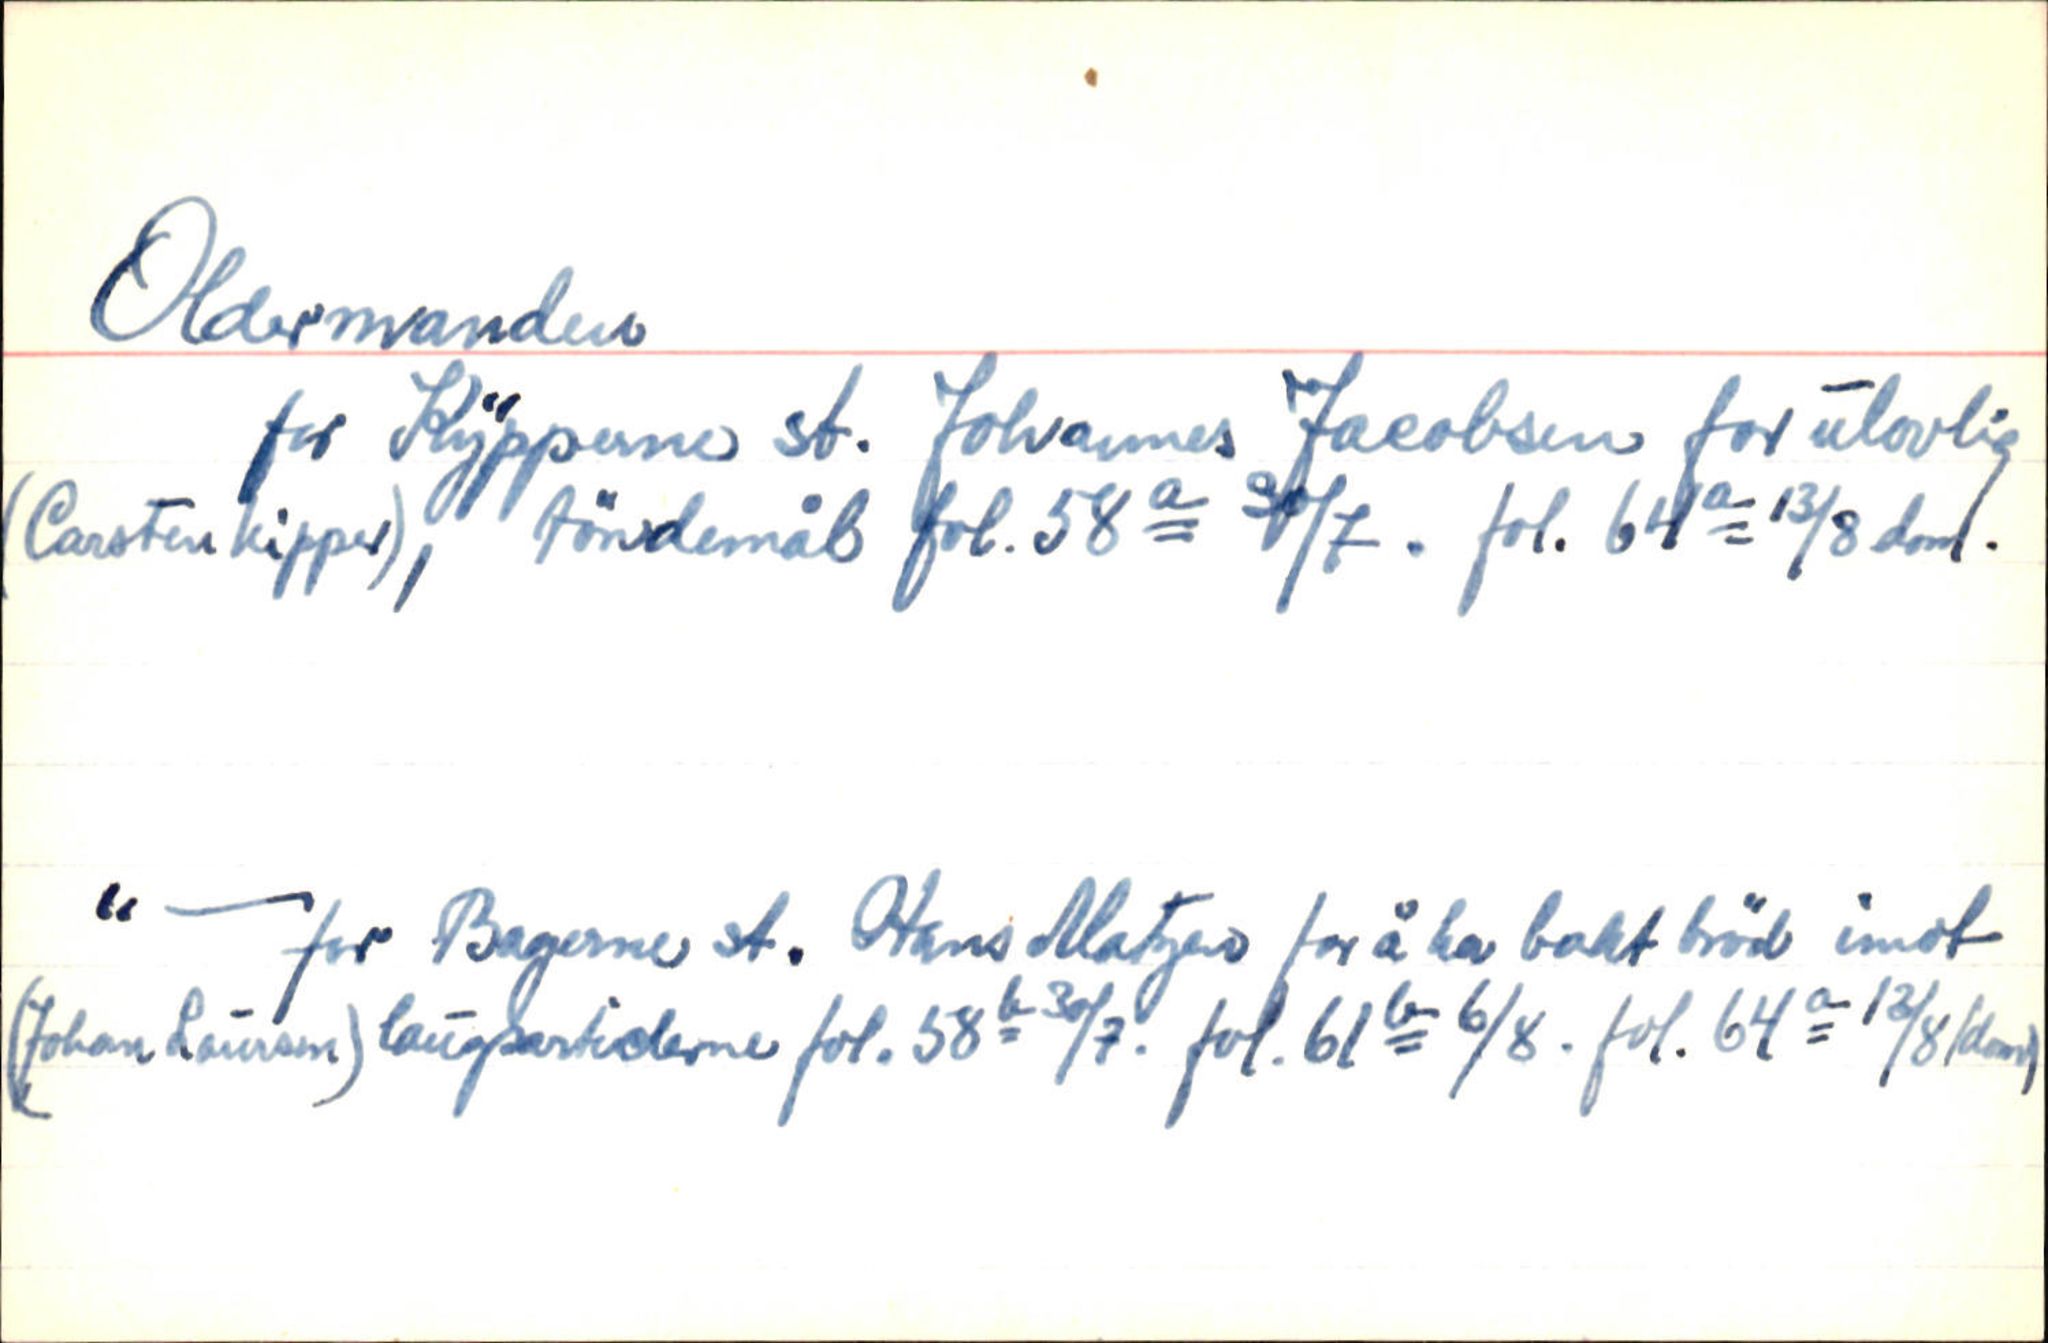 Oldermanden
for Kÿpperne st. Johannes Jacobsen for ulovlig
(Carsten kipper), töndemål fol. 58a 30/7. fol. 64a 13/8 dom.
" — for Bagerne st. Hans Matzen for å ha bakt bröd imot
(Johan Laursen) laugsarticlerne fol. 58b 30/7. fol. 61b 6/8. fol. 64a 13/8 (dom)